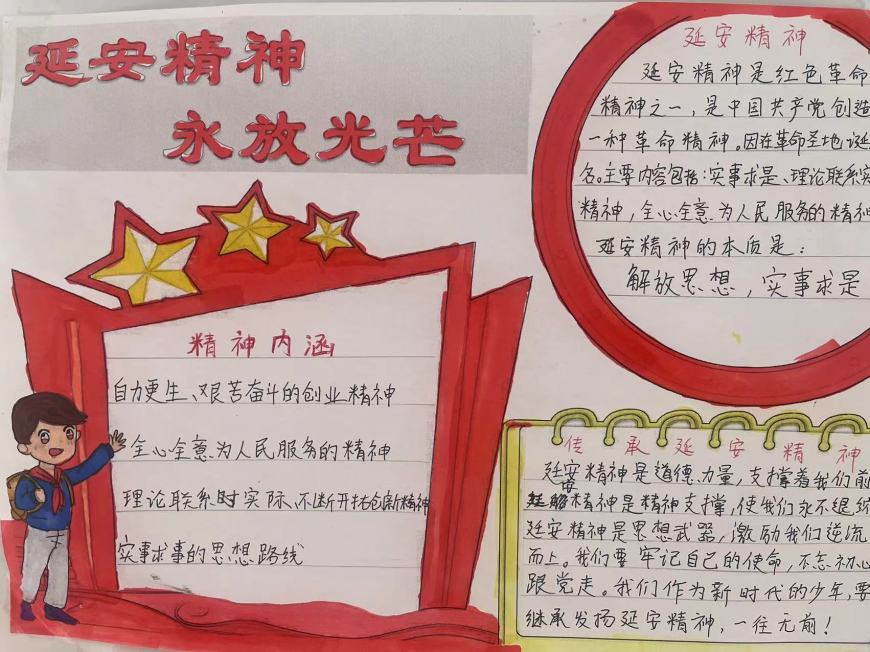 延安精神
永放光芒
精神内涵
自力更生、艰苦奋斗的创业精神
全心全意为人民服务的精神
理论联系时实际、不断开拓创新精神
实事求事的思想路线
延安精神
延安精神是红色革命
精神之一，是中国共产党创造
一种革命精神。因在革命圣地诞
名。主要内容包括：实事求是、理论联系实
精神，全心全意为人民服务的精神
延安精神的本质是：
解放思想，实事求是
传承延安精神
延安精神是道德力量，支撑着我们前
精神是精神支撑，使我们永不退缩
延安精神是思想武器，激励我们逆流
而上。我们要牢记自己的使命，不忘初心
跟党走。我们作为新时代的少年，要
继承发扬延安精神，一往无前！